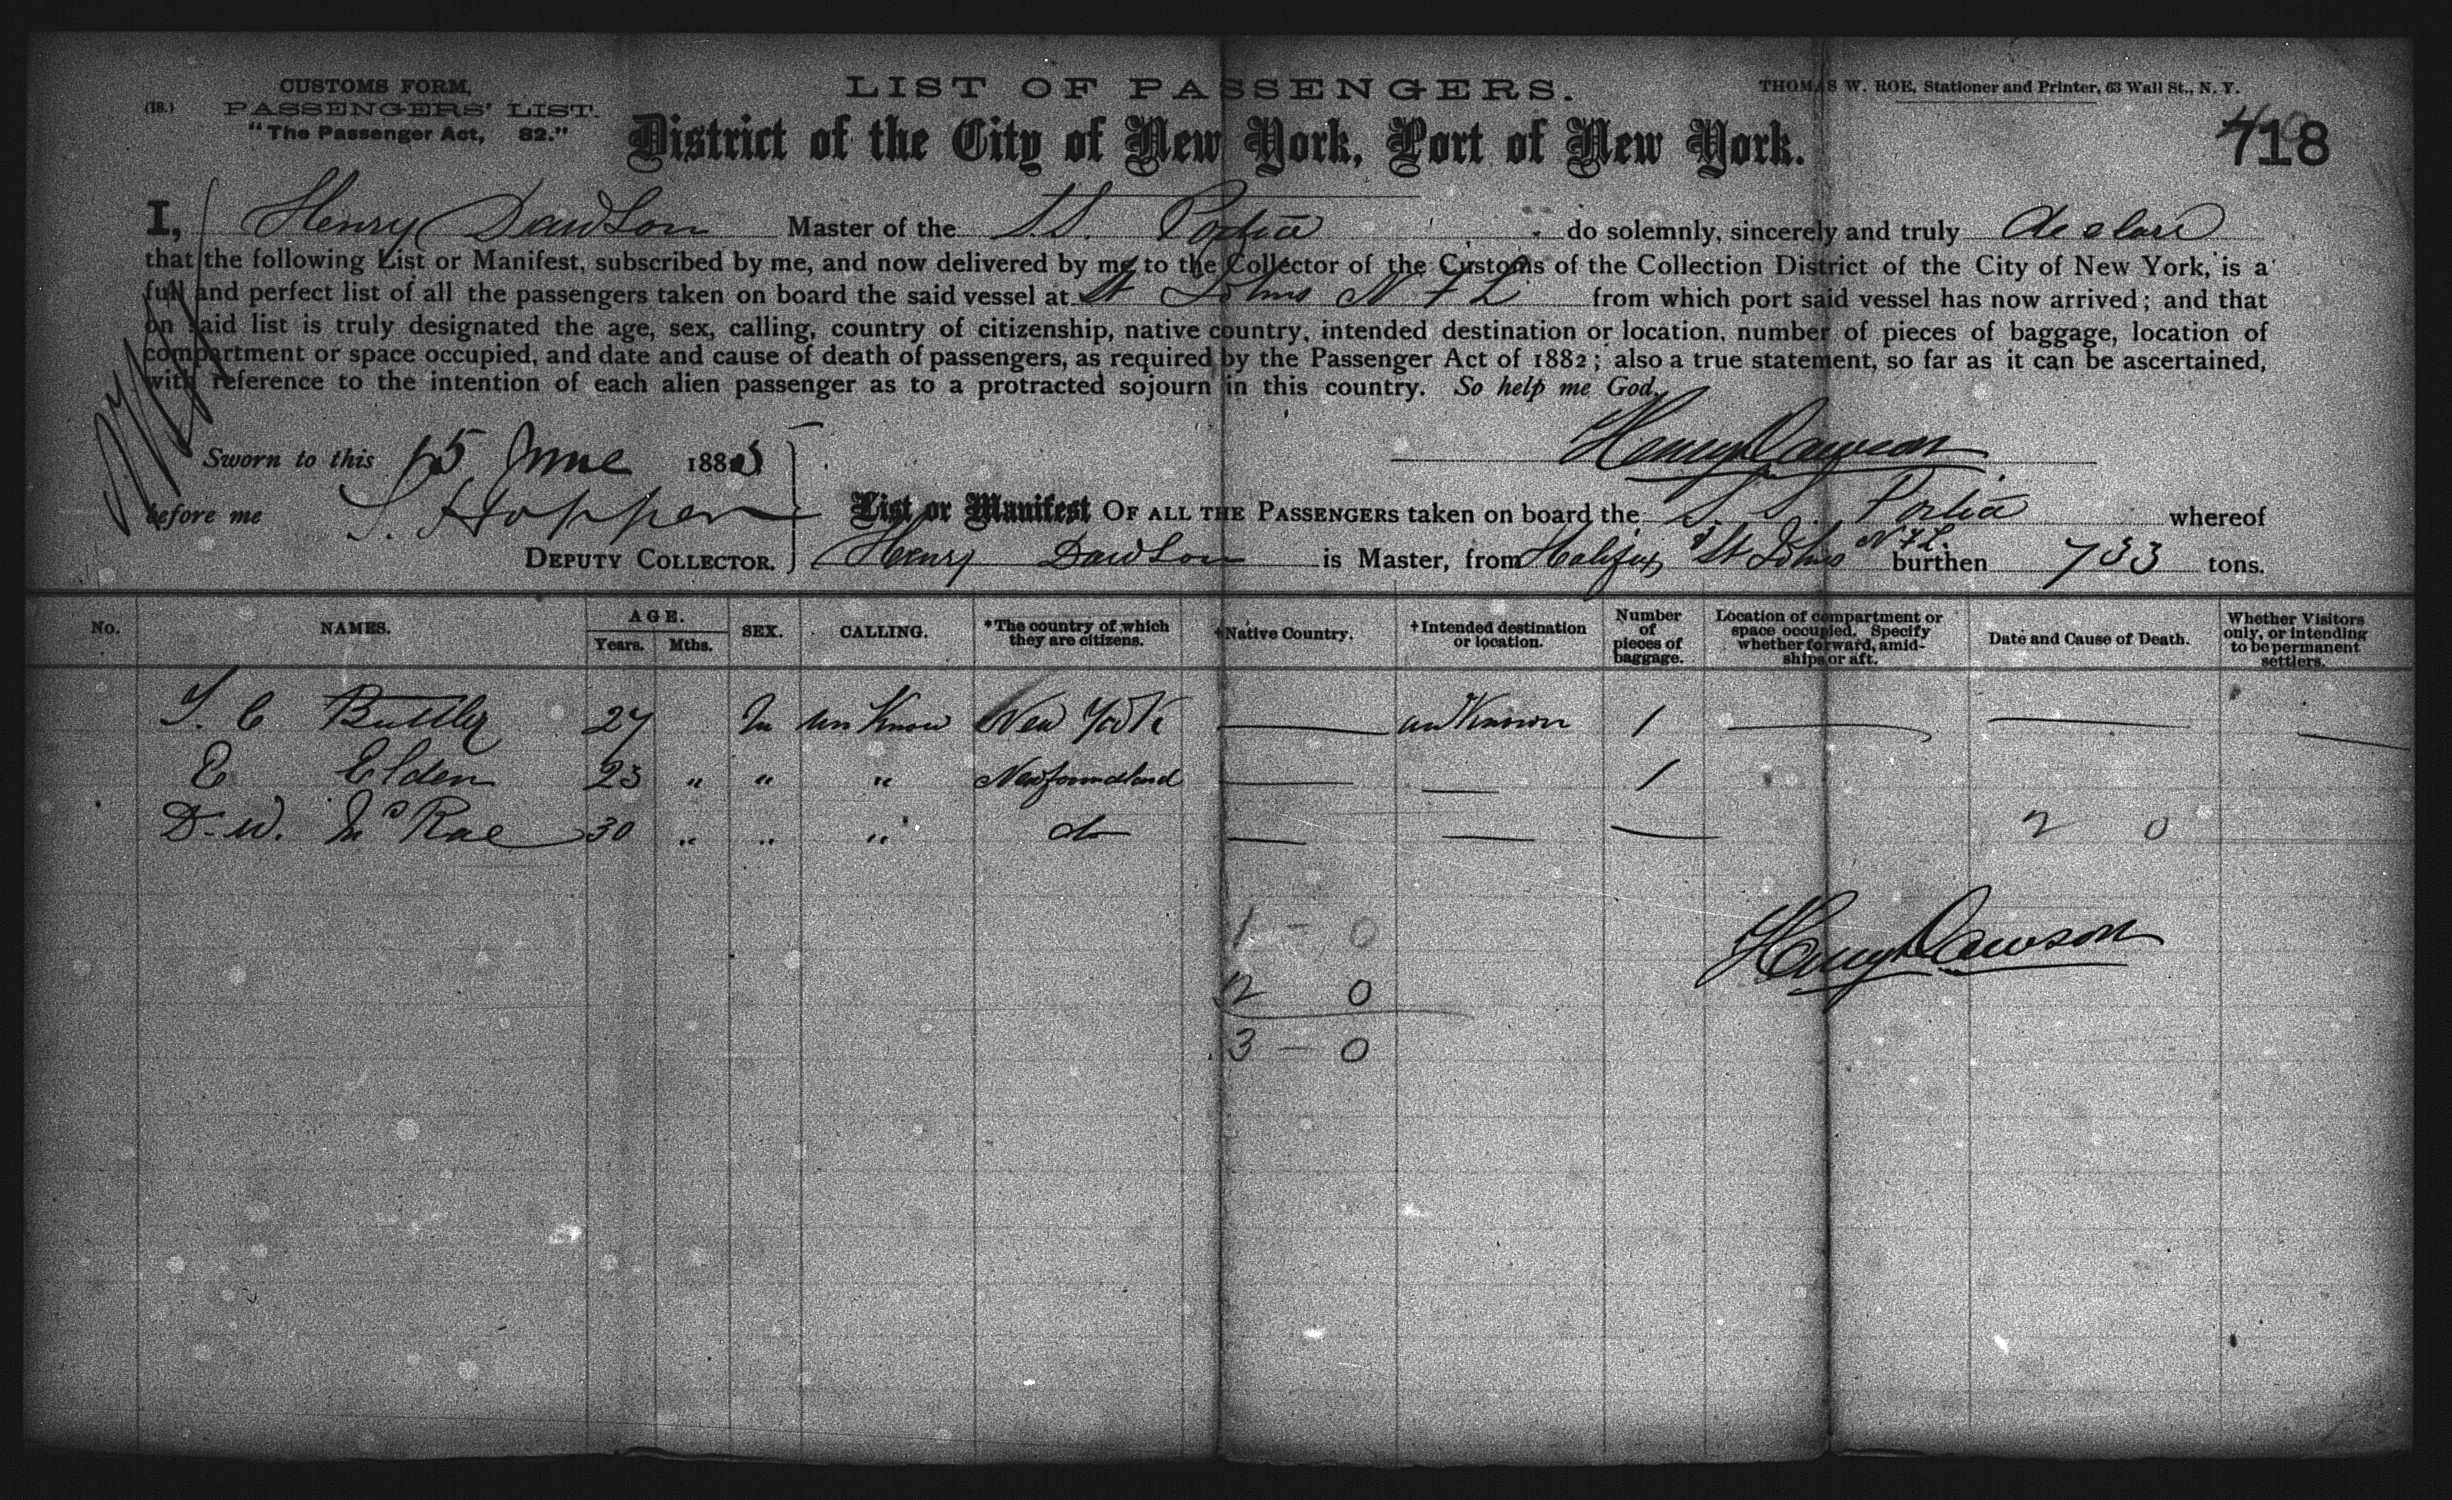 CUSTOMS FORM,
(18.) PASSENGERS' LIST.
"The Passenger Act, 82."
LIST OF PASSENGERS.
THOMAS W. ROE, Stationer and Printer, 63 Wall St., N. Y.
District of the City of New York, Port of New York.
718
I, Henry Dawson Master of the S.S. Portia do solemnly, sincerely and truly declare
that the following List or Manifest, subscribed by me, and now delivered by me to the Collector of the Customs of the Collection District of the City of New York, is a
full and perfect list of all the passengers taken on board the said vessel at St Johns N F L from which port said vessel has now arrived; and that
on said list is truly designated the age, sex, calling, country of citizenship, native country, intended destination or location, number of pieces of baggage, location of
compartment or space occupied, and date and cause of death of passengers, as required by the Passenger Act of 1882; also a true statement, so far as it can be ascertained,
with reference to the intention of each alien passenger as to a protracted sojourn in this country. So help me God.
Henry Dawson
Sworn to this 15 June 188
before me S. Hopper
DEPUTY COLLECTOR.
List or Manifest OF ALL THE PASSENGERS taken on board the S S Portia whereof
Henry Dawson is Master, from Halifax & St Johns N F L. burthen 733 tons.
No. NAMES. AGE. Years. Mths. SEX. CALLING. *The country of which they are citizens. †Native Country. †Intended destination or location. Number of pieces of baggage. Location of compartment or space occupied. Specify whether forward, amidships or aft. Date and Cause of Death. Whether Visitors only, or intending to be permanent settlers.
C Buttler 27 M un Know New York — unKnown 1 — — —
E Elden 23 " " " Newfoundland — — 1
D. W. McRae 30 " " " do — — —
2 0
1 - 0
2 0
3 - 0
Henry Dawson